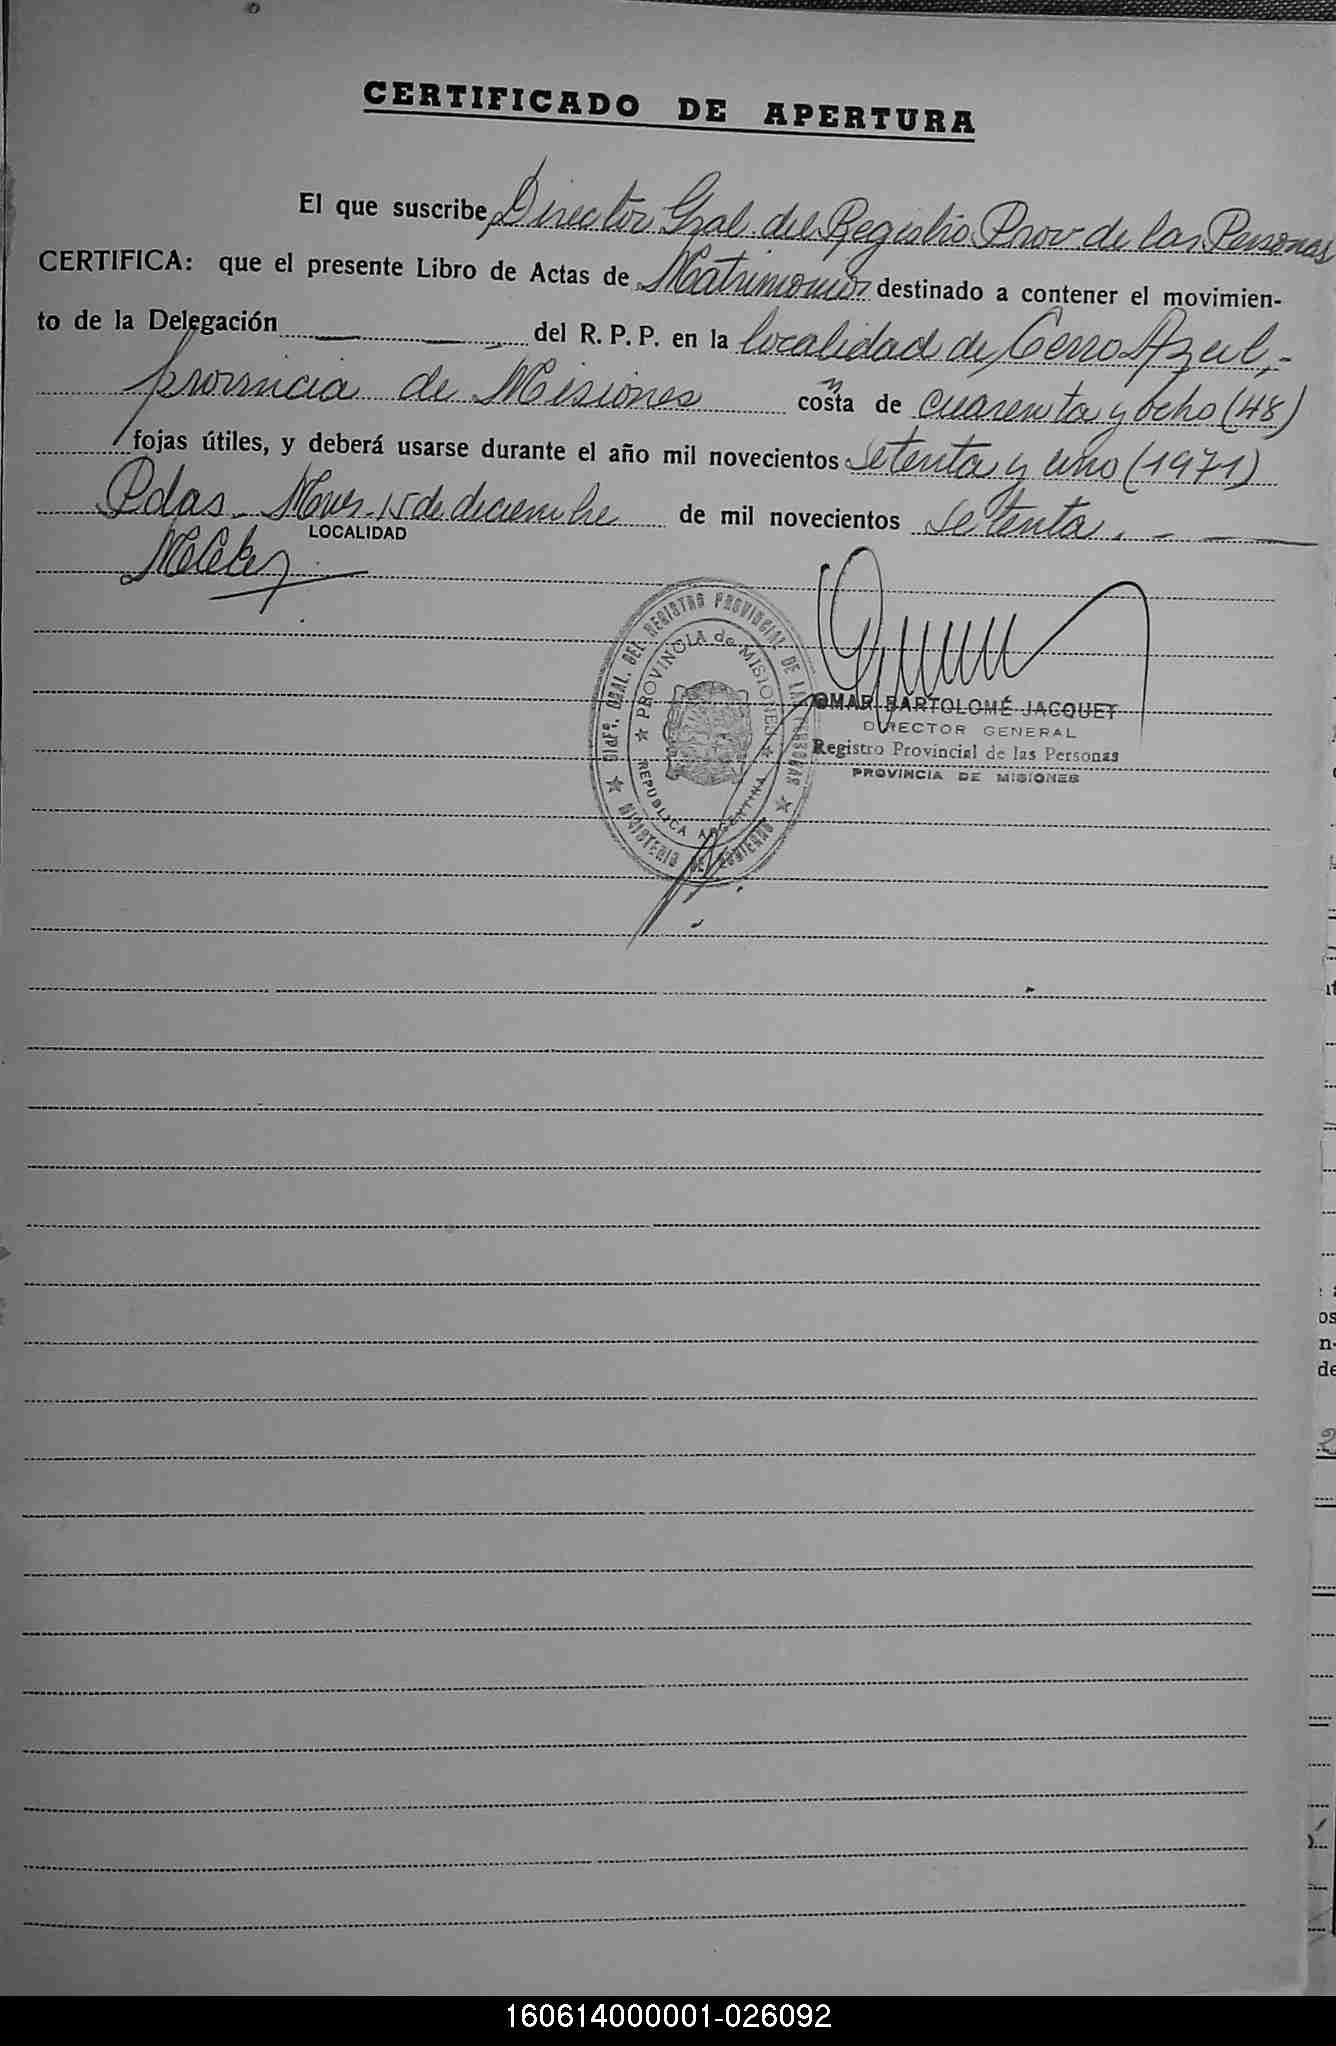 CERTIFICADO DE APERTURA
El que suscribe Director Gral. del Registro Prov de las Personas
CERTIFICA: que el presente Libro de Actas de Matrimonios destinado a contener el movimien-
to de la Delegación del R. P. P. en la localidad de Cerro Azul,-
provincia de Misiones consta de cuarenta y ocho (48)
fojas útiles, y deberá usarse durante el año mil novecientos setenta y uno (1971)
Pdas. Mnes. 15 de diciembre de mil novecientos setenta. - -
LOCALIDAD
DIRº. GRAL. DEL REGISTRO PROVINCIAL DE LAS PERSONAS
★ PROVINCIA de MISIONES ★
REPUBLICA ARGENTINA
★ MINISTERIO DE GOBIERNO ★
OMAR BARTOLOMÉ JACQUET
DIRECTOR GENERAL
Registro Provincial de las Personas
PROVINCIA DE MISIONES
os
n-
de
160614000001-026092